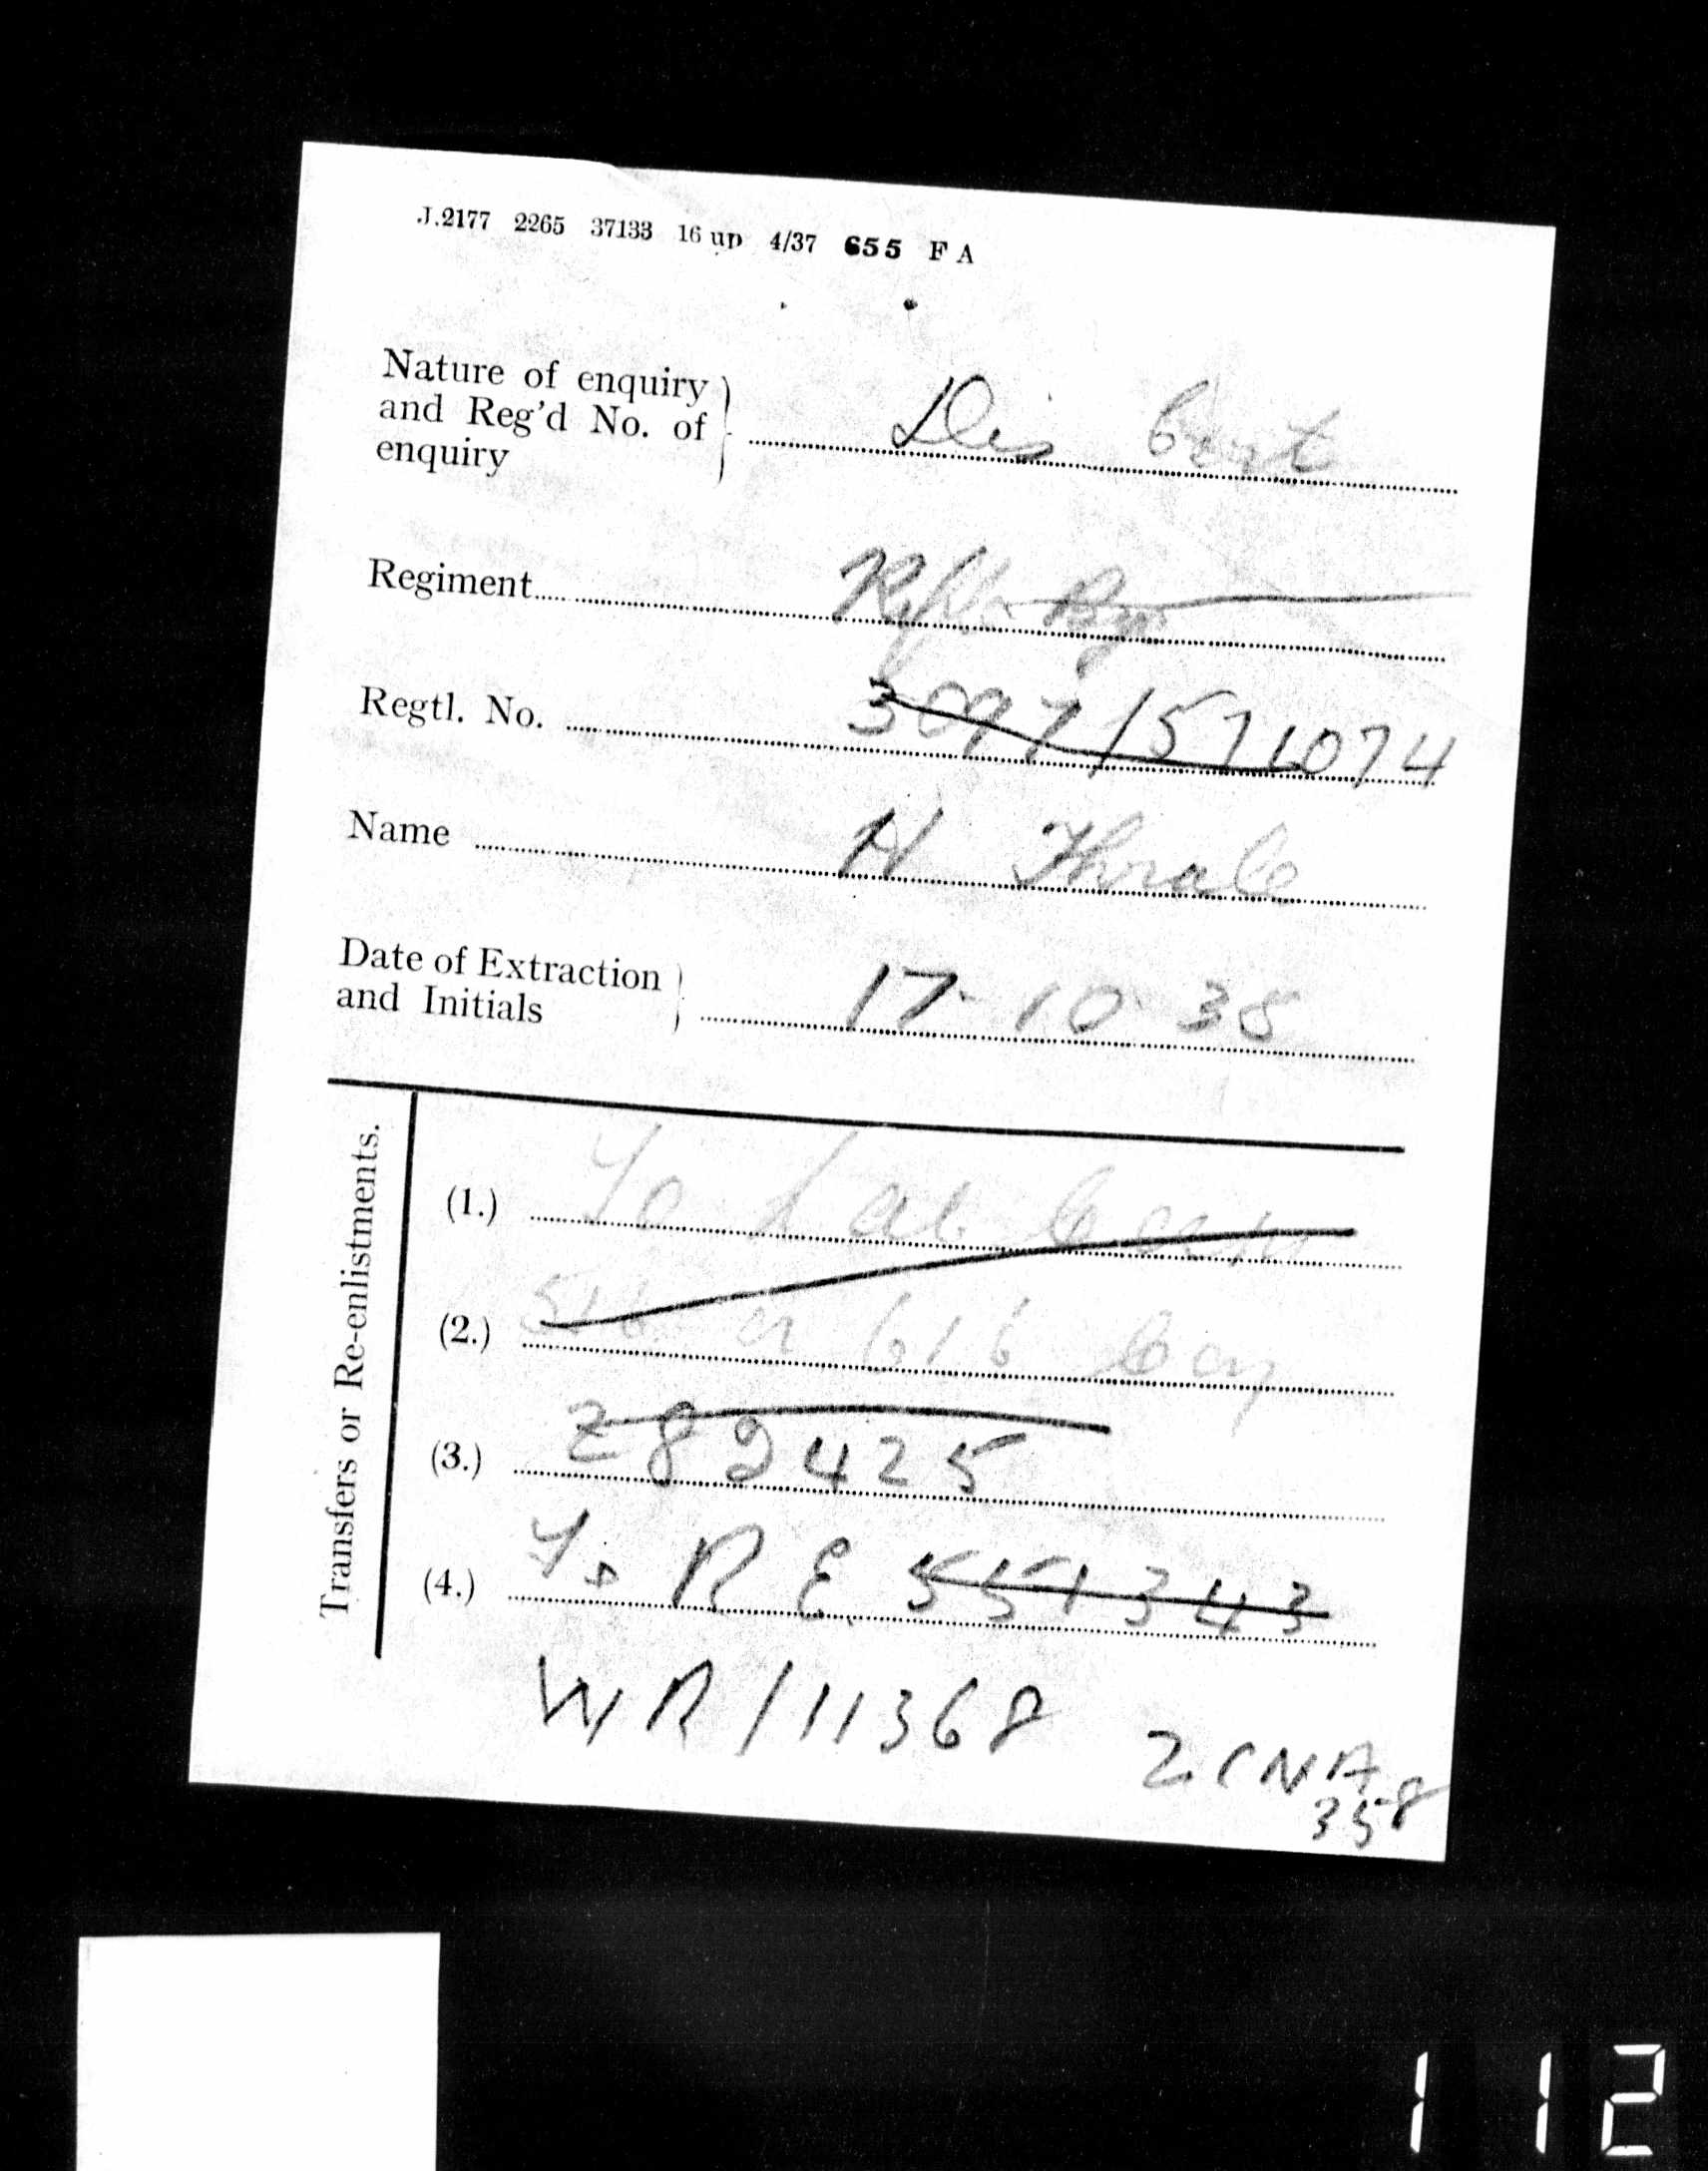 J.2177 2265 37133 16 up 4/37 655 F A
Nature of enquiry
and Reg'd No. of
enquiry
Dis Cert
Regiment Rifle Bge
Regtl. No. 3097 / 571074
Name H Thrale
Date of Extraction
and Initials
17-10-38
Transfers or Re-enlistments.
(1.) To Lab Corps
(2.) 516 or 616 Coy
(3.) 282425
(4.) To R E 551343
WR/11368
2 CNA
358
112